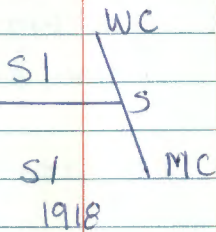 WC
SI
S
SI MC
1918